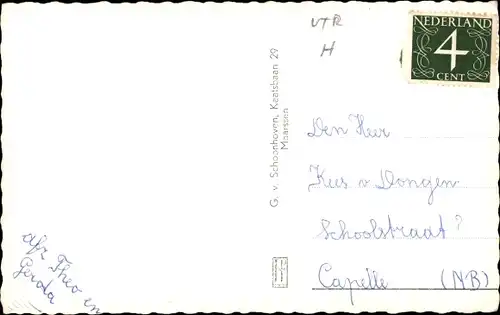 UTR
H
NEDERLAND
4
CENT
G. v. Schoonhoven, Kaatsbaan 29
Maarssen
Den Heer
Kees v Dongen
Schoolstraat?
Capelle (NB)
afz Theo en
Gerda